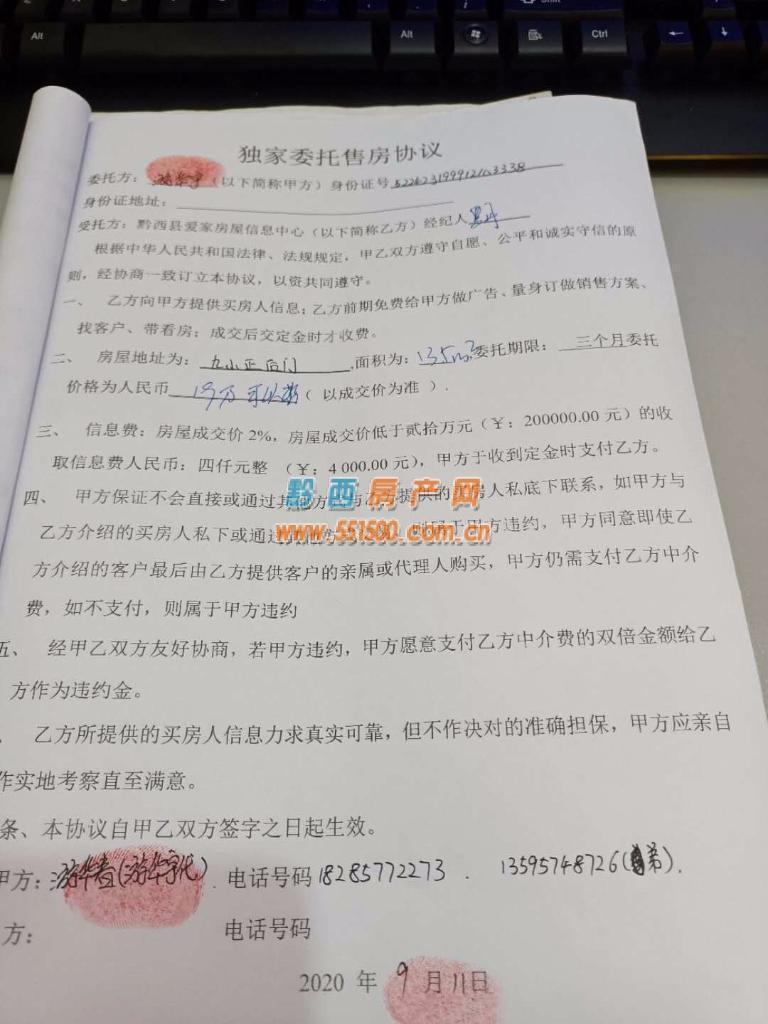 Alt
Alt
Ctrl
独家委托售房协议
委托方：游华宇（以下简称甲方）身份证号
身份证地址：
受托方：黔西县爱家房屋信息中心（以下简称乙方）经纪人
根据中华人民共和国法律、法规规定，甲乙双方遵守自愿、公平和诚实守信的原
则，经协商一致订立本协议，以资共同遵守。
一、 乙方向甲方提供买房人信息；乙方前期免费给甲方做广告、量身订做销售方案、
找客户、带看房；成交后交定金时才收费。
二、 房屋地址为：九小正后门,面积为：135m²委托期限：三个月委托
价格为人民币19万（以成交价为准）.
三、 信息费：房屋成交价2%，房屋成交价低于贰拾万元（￥：200000.00 元）的收
取信息费人民币：四仟元整 （￥：4 000.00 元），甲方于收到定金时支付乙方。
四、 甲方保证不会直接或通过其他方式与乙方提供的买房人私底下联系，如甲方与
乙方介绍的买房人私下或通过则属于甲方违约，甲方同意即使乙
方介绍的客户最后由乙方提供客户的亲属或代理人购买，甲方仍需支付乙方中介
费，如不支付，则属于甲方违约
黔西房产网
www.551500.com.cn
五、 经甲乙双方友好协商，若甲方违约，甲方愿意支付乙方中介费的双倍金额给乙
方作为违约金。
乙方所提供的买房人信息力求真实可靠，但不作决对的准确担保，甲方应亲自
作实地考察直至满意。
条、本协议自甲乙双方签字之日起生效。
甲方：(游华宇代). 电话号码 18285772273 . 13595748726(弟).
方： 电话号码
2020 年 9 月 11日